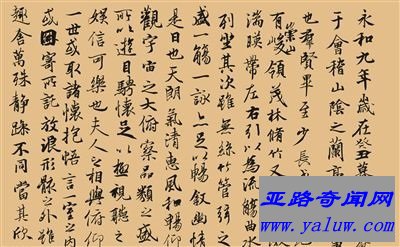 永和九年歲在癸丑暮
于會稽山陰之蘭亭
也羣賢畢至少長
有崇山峻領茂林脩竹又
湍暎帶左右引以為流觴曲水
列坐其次雖無絲竹管弦之
盛一觴一詠亦足以暢叙幽情
是日也天朗氣清惠風和暢仰
觀宇宙之大俯察品類之盛
所以遊目騁懷足以極視聽之
娛信可樂也夫人之相與俯仰
一世或取諸懷抱悟言一室之內
或因寄所託放浪形骸之外雖
趣舍萬殊靜躁不同當其欣
亚路奇闻网
www.yaluw.com